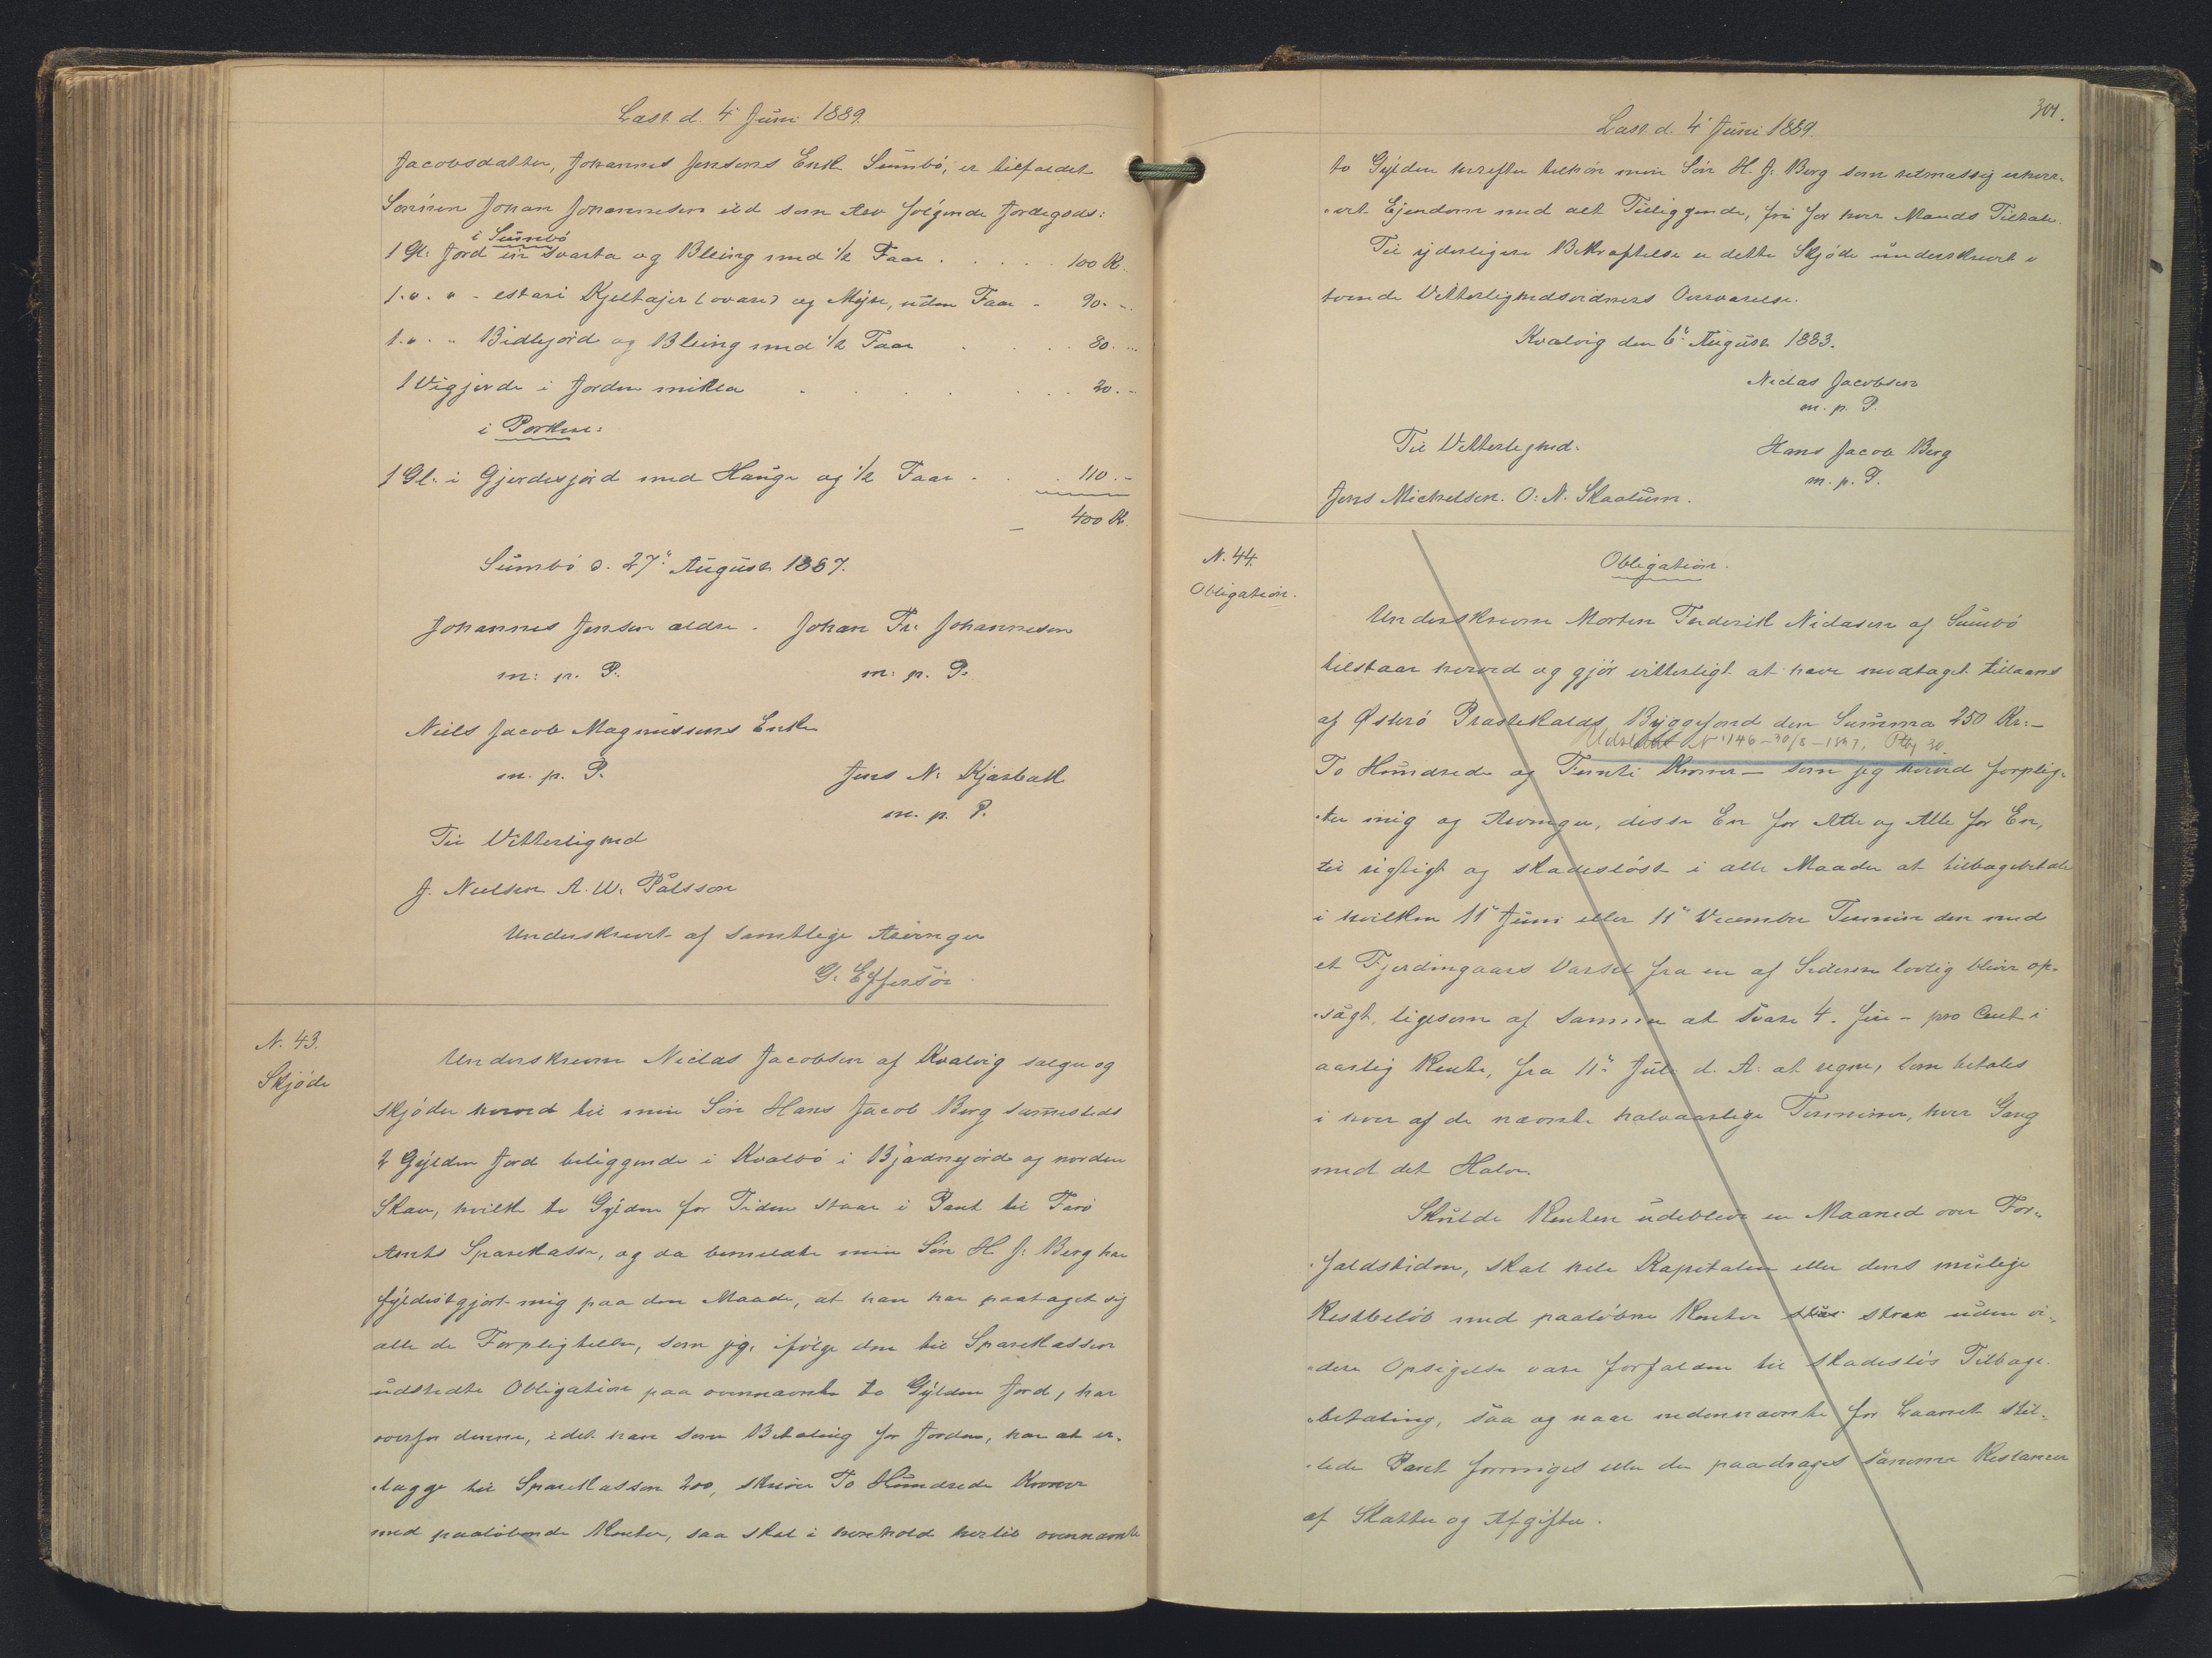 Læst d. 4' Juni 1889.
Jacobsdatter, Johannes Jensens Enke Sumbö, er tilfaldet
Sönnen Johan Johannesen ild som Arv fölgende Jordegods:
i Sumbö
1 Gl: Jord in Svarta og Bleing med 1/2 Faar . . . . . 100 Kr.
1 . " . " - estari Kjeltajer (ovare) og Mýre, uden Faar - 90. -
1 . " . " Bidlejörd og Bleing med 1/2 Faar . . . 80. -
1 Vigjerde i Jorden mikla . . . . . . 20. -
i Porkere:
1 Gl. i Gjerdesjörd med Hauge og 1/2 Faar . . . 110. -
400 Kr.
Sumbö d. 27" August 1887.
Johannes Jensen ældre. Johan Fr: Johannesen
m: p. P. m: p. P.
Niels Jacob Magnussens Enke
m. p. P. Jens N: Kjærbæk
m. p. P.
Til Vitterlighed
J. Nielsen A. W. Pålsson
Underskrevet af samtlige Arvinger
G. Effersöe.
N. 43.
Skjöde
Underskrevne Niclas Jacobsen af Kvalvig sælger og
skjöder herved til min Sön Hans Jacob Berg sammesteds
2 Gylden Jord beliggende i Kvalbö i Bjadnejörd og norden
Skav, hvilke to Gylden for Tiden staar i Pant til Færö
Amts Sparekasse, og da bemeldte min Sön H. J. Berg har
fyldestgjort mig paa den Maade, at han har paataget sig
alle de Forpligtelser, som jeg, ifölge den til Sparekassen
udstedte Obligation paa ovennævnte to Gylden Jord, har
overfor denne, idet han som Betaling for Jorden, har at er-
lægge til Sparekassen 200, skriver To Hundrede Kroner
med paalöbende Renter, saa skal i henhold hertil ovennævnte
304.
Læst d. 4' Juni 1889.
to Gylden herefter tilhöre min Sön H. J. Berg som retmæssig erhver-
vet Ejendom med alt Tilliggende, fri for hver Mands Tiltale.
Til yderligere Bekræftelse er dette Skjöde underskrevet i
tvende Vitterlighedsvidners Overværelse.
Kvalvig den 6" August 1883.
Niclas Jacobsen
m. p. P.
Til Vitterlighed. Hans Jacob Berg
m. p. P.
Jens Michelsen. O: N. Skaalum.
N. 44.
Obligation.
Obligation.
Underskrevne Morten Frederik Niclasen af Sumbö
tilstaar herved og gjör vitterligt at have modtaget tillaans
af Østerö Præstekalds Byggefond den Summa 250 Kr: -
Udslettet N 146 - 30/8 - 1897, Ptbg 30.
To Hundrede og Femti Kroner - som jeg herved forplig-
ter mig og Arvinger, disse En for Alle og Alle for En,
til rigtigt og skadeslöst i alle Maader at tilbagebetale
i hvilken 11" Juni eller 11" December Termin den med
et Fjerdingaars Varsel fra en af Siderne lovlig bliver op-
sagt, ligesom af Samme at svare 4. fire - pro Cent i
aarlig Rente, fra 11" Juli d. A. at regne, som betales
i hver af de nævnte halvaarlige Terminer, hver Gang
med det Halve.
Skulde Renten udeblive en Maaned over For-
faldstiden, skal hele Kapitalen eller dens mulige
Restbelöb med paalöbne Renter strax uden vi-
dere Opsigelse være forfalden til skadeslös Tilbage-
betaling, saa og naar nedennævnte for Laanet stil-
lede Pant forringes eller der paadrages samme Restancer
af Skatter og Afgifter.